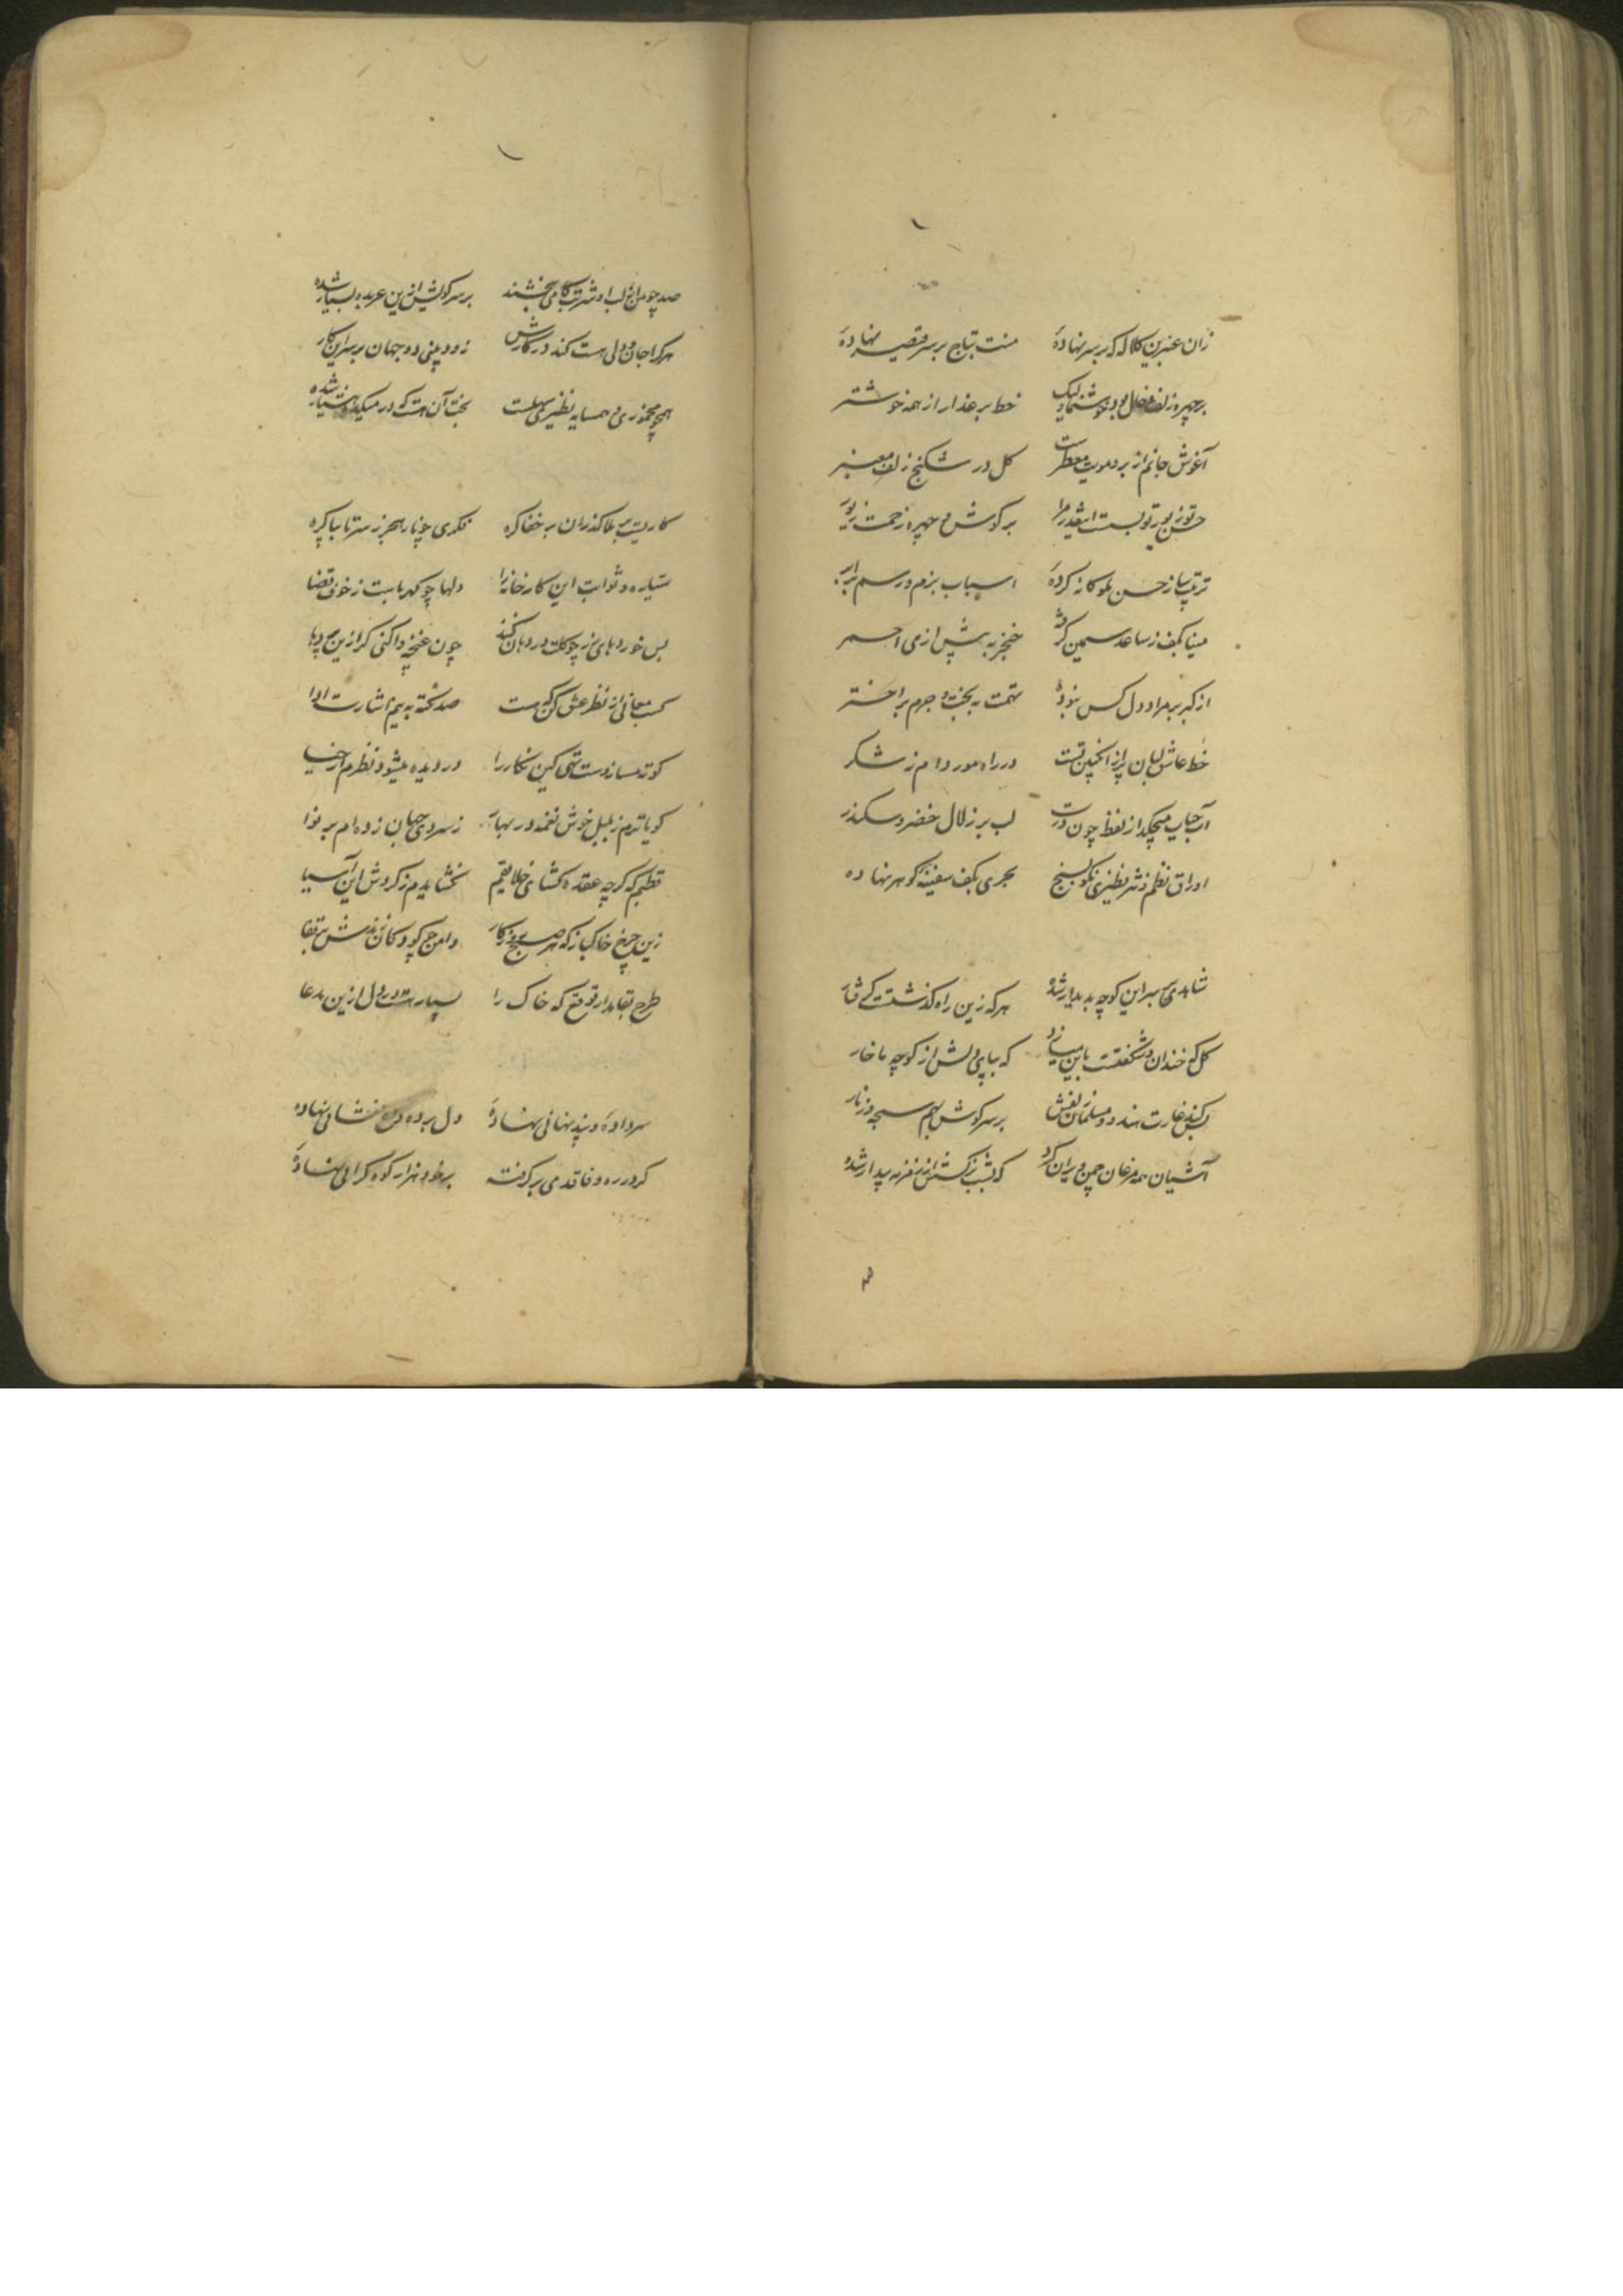 زان عنبرین کلاله که بر سر نهادهٔ منت بتاج بر سر قیصر نهادهٔ
بر چهره زلف و خال بود خوشنما ولیک خط بر عذار از همه خوشتر
آغوش جانم از بر و مویت معطرست کل در شکنج زلف معنبر
حسن تو زیور تو بست اینقدر چرا بر کوش و چهره زحمت زیور
ترتیب ساز حسن ملوکانه کردهٔ اسباب بزم و رسم برابر
مینا بکف ز ساعد سیمین کرفتهٔ خنجر به پیش از می احمر
از کبر بر مراد دل کس نبودهٔ تهمت به بخت و جرم بر اختر
خط عاشق لبان پر از انکبین تست در راه مور دام ز شکر
آب حیات میچکد از لفظ چون درت لب بر زلال خضر و سکندر
اوراق نظم و نثر نظیری نکو بسنج بحری بکف سفینه کوهر نهاده
شاهدی بر سر این کوچه پدیدار شد هر که زین راه کذشتست
کل کجا خندان و شکفتست باین میماند که بپای دلش از کوچه ما خار
بسکه غارت هندو و مسلمان زلفش بر سر کوش بهم سبحه و زنار
آشیان همه مرغان چمن ویران کرد که شب نرکسش از نغمه بیدار شده
صد چو من از لب او شربت کامی بخشند بر سر کویش ازین عربده بسیار شده
هر کرا جان و دلی هست کند در کارش زود بینی دو جهان بر سر این کار
همچو مخموری و همسایه نظیری سهلست بخت آن مست که در میکده هشیار شده
کاریست پر بلا کذران بر خفا کره نکدی چو تار هجر ز سر تا بپا کره
سیاره و ثوابت این کارخانه را دلها چو کهرباست ز خوف قضا
بس خوردهای زر چو کلت در دهان کنند چون غنچه واکنی کر ازین
کسب معانی از نظر عشق کن که هست صد نکته به بیم اشارت ادا
کوته مساز دست تهی کین نکار را در دیده میشود نظرم از حیا
کویاترم ز بلبل خوش نغمه در بهار ز سردی جهان زده‌ام بر نوا
قطبم که کرچه عقده کشای خلایقم نکشایدم ز کردش این آسیا
زین چرخ خاکباز که هر صبح روزکار دامن چو کودکان زندش بر قفا
طرح بقا مدار توقع که خاک را بسیار هست در دل ازین مدعا
سر داده و بند نهانی نهادهٔ دل برده و داغ نشانی نهاده
کر در ره وفا قدمی بر کرفته بر خود هزار کوه کرانی نهادهٔ